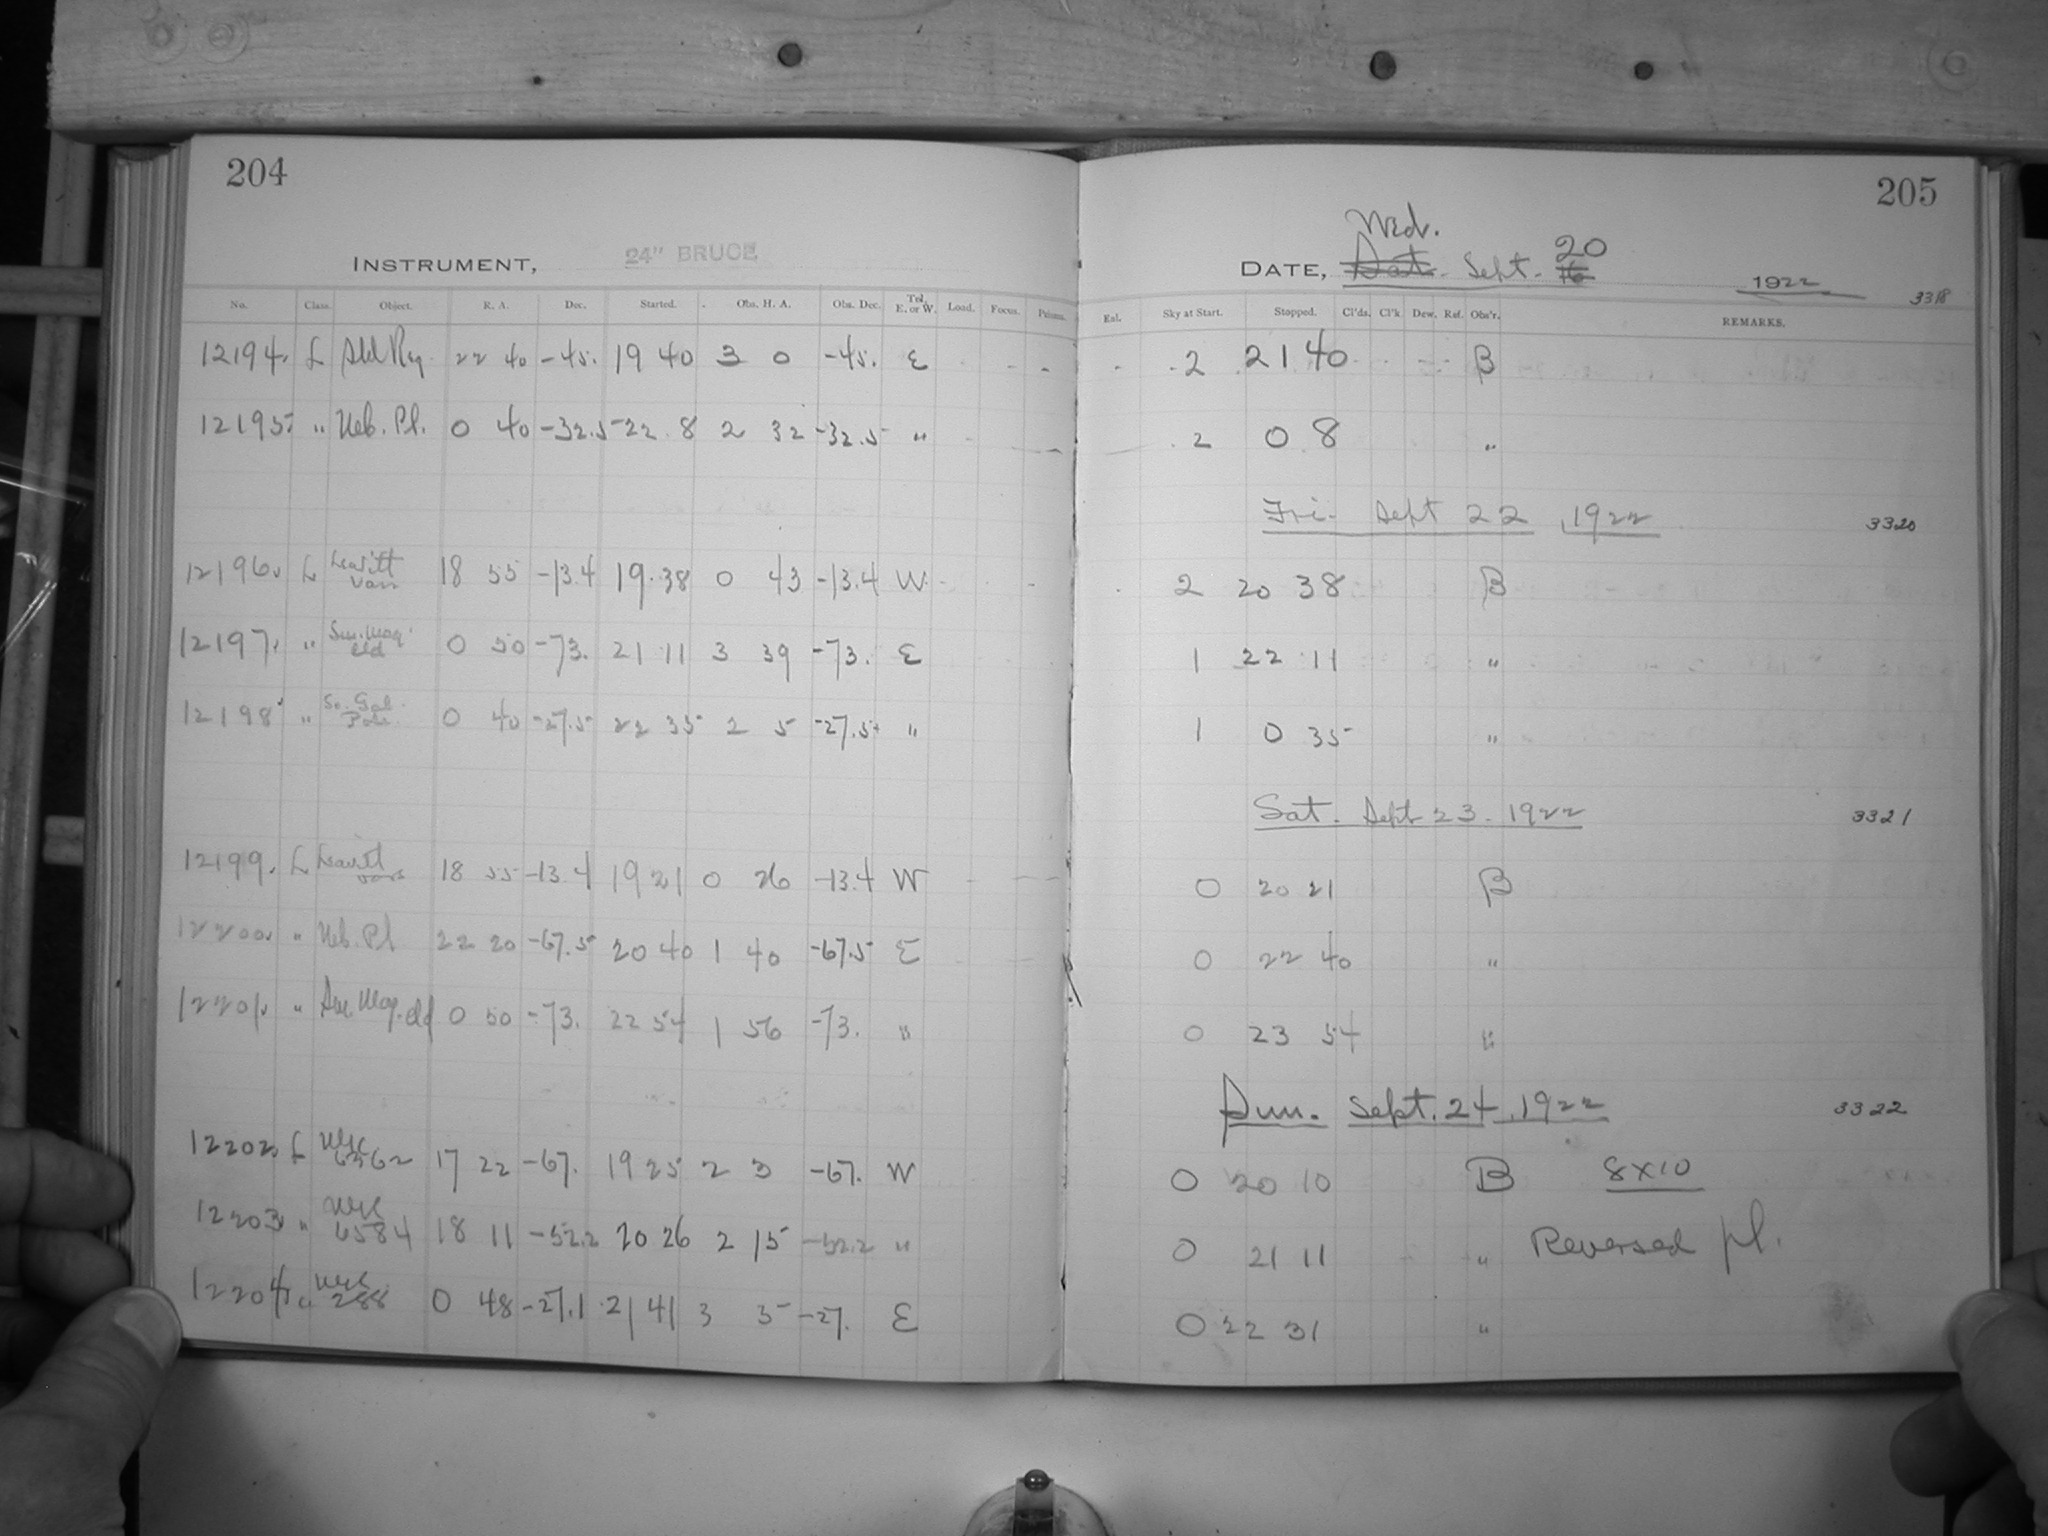 204
INSTRUMENT, 24" BRUCE
No. Class. Object. R. A. Dec. Started. Obs. H. A. Obs. Dec. Tel. E. or W. Load. Focus. Prisms.
12194 L 22 40 -45. 19 40 3 0 -45. E
12195 " Neb. Pl. 0 40 -32.5 22 8 2 32 -32.5 "
12196 L Leavitt vars 18 55 -13.4 19 38 0 43 -13.4 W
12197 " Sm. Mag. cld 0 50 -73. 21 11 3 39 -73. E
12198 " So. Gal. Pole 0 40 -27.5 22 35 2 5 -27.5 "
12199 L Leavitt vars 18 55 -13.4 19 21 0 26 -13.4 W
12200 " Neb. Pl 22 20 -67.5 20 40 1 40 -67.5 E
12201 " Sm. Mag. cld 0 50 -73. 22 54 1 56 -73. "
12202 L NGC 6362 17 22 -67. 19 25 2 3 -67. W
12203 " NGC 6584 18 11 -52.2 20 26 2 15 -52.2 "
12204 " NGC 288 0 48 -27.1 21 41 3 5 -27. E
205
Wed.
DATE, Sat. Sept. 16 20 1922
3318
Exl. Sky at Start. Stopped. Cl'ds. Cl'k Dew. Ref. Obs'r. REMARKS.
2 21 40 B
2 0 8 "
Fri. Sept 22 1922 3320
2 20 38 B
1 22 11 "
1 0 35 "
Sat. Sept 23. 1922 3321
0 20 21 B
0 22 40 "
0 23 54 "
Sun. Sept. 24, 1922 3322
0 20 10 B 8X10
0 21 11 " Reversed pl.
0 22 31 "